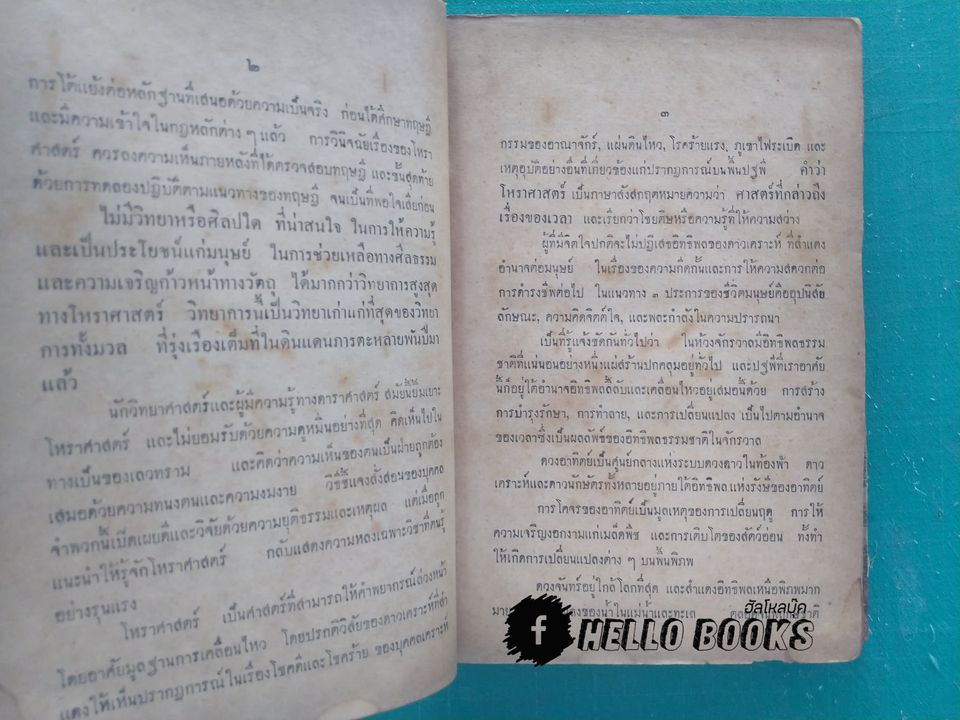 ๒
การโต้แย้งต่อหลักฐานที่เสนอด้วยความเป็นจริง ก่อนได้ศึกษาทฤษฎี
และมีความเข้าใจในกฎหลักต่าง ๆ แล้ว การวินิจฉัยเรื่องของโหรา
ศาสตร์ ควรลงความเห็นภายหลังที่ได้ตรวจสอบทฤษฎี และขั้นสุดท้าย
ด้วยการทดลองปฏิบัติตามแนวทางของทฤษฎี จนเป็นที่พอใจเสียก่อน
ไม่มีวิทยาหรือศิลปใด ที่น่าสนใจ ในการให้ความรู้
และเป็นประโยชน์แก่มนุษย์ ในการช่วยเหลือทางศีลธรรม
และความเจริญก้าวหน้าทางวัตถุ ได้มากกว่าวิทยาการสูงสุด
ทางโหราศาสตร์ วิทยาการนี้เป็นวิทยาเก่าแก่ที่สุดของวิทยา
การทั้งมวล ที่รุ่งเรืองเต็มที่ในดินแดนภารตะหลายพันปีมา
แล้ว
นักวิทยาศาสตร์และผู้มีความรู้ทางดาราศาสตร์ สมัยนี้ยิ้มเยาะ
โหราศาสตร์ และไม่ยอมรับด้วยความดูหมิ่นอย่างที่สุด คิดเห็นไปใน
ทางเป็นของเลวทราม และคิดว่าความเห็นของตนเป็นฝ่ายถูกต้อง
เสมอด้วยความทนงตนและความงมงาย วิธีชี้แจงสั่งสอนของบุคคล
จำพวกนี้เปิดเผยดีและวิจัยด้วยความยุติธรรมและเหตุผล แต่เมื่อถูก
แนะนำให้รู้จักโหราศาสตร์ กลับแสดงความหลงเฉพาะวิชาที่ตนรู้
อย่างรุนแรง
โหราศาสตร์ เป็นศาสตร์ที่สามารถให้คำพยากรณ์ล่วงหน้า
โดยอาศัยมูลฐานการเคลื่อนไหว โดยปรกติวิสัยของดาวเคราะห์ที่สำ
แดงให้เห็นปรากฏการณ์ในเรื่องโชคดีและโชคร้าย ของบุคคลเคราะห์
๓
กรรมของอาณาจักร์, แผ่นดินไหว, โรคร้ายแรง, ภูเขาไฟระเบิด และ
เหตุอุบัติอย่างอื่นที่เกี่ยวข้องแก่ปรากฏการณ์บนพื้นปฐพี คำว่า
โหราศาสตร์ เป็นภาษาสังสกฤตหมายความว่า ศาสตร์ที่กล่าวถึง
เรื่องของเวลา และเรียกว่าโชยติษหรือความรู้ที่ให้ความสว่าง
ผู้ที่มีจิตใจปกติจะไม่ปฏิเสธอิทธิพลของดาวเคราะห์ ที่สำแดง
อำนาจต่อมนุษย์ ในเรื่องของความกีดกั้นและการให้ความสดวกต่อ
การดำรงชีพต่อไป ในแนวทาง ๓ ประการของชีวิตมนุษย์คืออุปนิสัย
ลักษณะ, ความคิดจิตต์ใจ, และพละกำลังในความปรารถนา
เป็นที่รู้แจ้งชัดกันทั่วไปว่า ในห้วงจักรวาลมีอิทธิพลธรรม
ชาติที่แน่นอนอย่างหนึ่งแผ่สร้านปกคลุมอยู่ทั่วไป และปฐพีที่เราอาศัย
นี้ก็อยู่ใต้อำนาจอิทธิพลลี้ลับและเคลื่อนไหวอยู่เสมอนี้ด้วย การสร้าง
การบำรุงรักษา, การทำลาย, และการเปลี่ยนแปลง เป็นไปตามอำนาจ
ของเวลาซึ่งเป็นผลลัพธ์ของอิทธิพลธรรมชาติในจักรวาล
ดวงอาทิตย์เป็นศูนย์กลางแห่งระบบดวงดาวในท้องฟ้า ดาว
เคราะห์และดาวนักษัตรทั้งหลายอยู่ภายใต้อิทธิพลแห่งรังษีของอาทิตย์
การโคจรของอาทิตย์เป็นมูลเหตุของการเปลี่ยนฤดู การให้
ความเจริญงอกงามแก่เมล็ดพืช และการเติบโตของสัตว์อ่อน ทั้งทำ
ให้เกิดการเปลี่ยนแปลงต่าง ๆ บนพื้นพิภพ
ดวงจันทร์อยู่ใกล้โลกที่สุด และสำแดงอิทธิพลเหนือพิภพมาก
ของน้ำในแม่น้ำและทะเล
ฮัลโหลบุ๊ค
f HELLO BOOKS